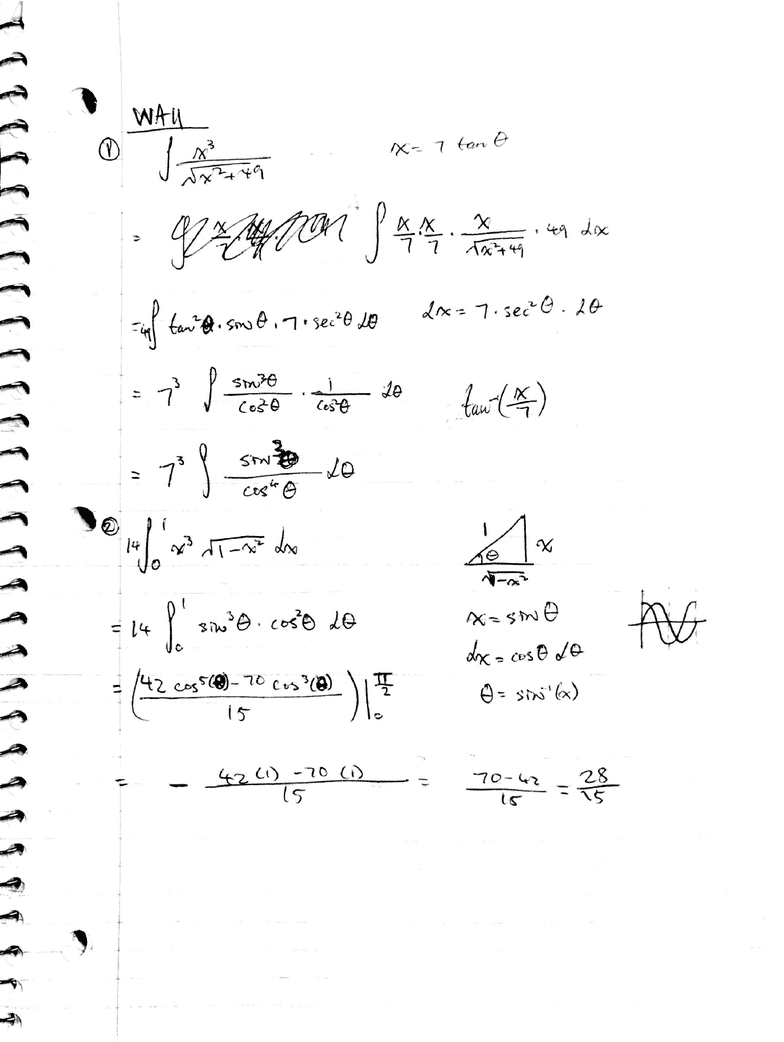 WA4
① ∫ x³/√(x²+49)    x = 7 tan θ
= ∫ x/7 · x/7 · x/√(x²+49) · 49 dx
= 49∫ tan²θ · sin θ · 7 · sec²θ dθ    dx = 7 · sec²θ · dθ
= 7³ ∫ sin³θ/cos²θ · 1/cos²θ dθ    tan⁻¹(x/7)
= 7³ ∫ sin³θ/cos⁴θ dθ
② 14∫₀¹ x³ √(1-x²) dx    1 θ x √(1-x²)
= 14 ∫₀¹ sin³θ · cos²θ dθ    x = sin θ
dx = cos θ dθ
= ((42 cos⁵(θ) - 70 cos³(θ))/15)|₀^(π/2)    θ = sin⁻¹(x)
= - (42(1) - 70(1))/15 = (70-42)/15 = 28/15